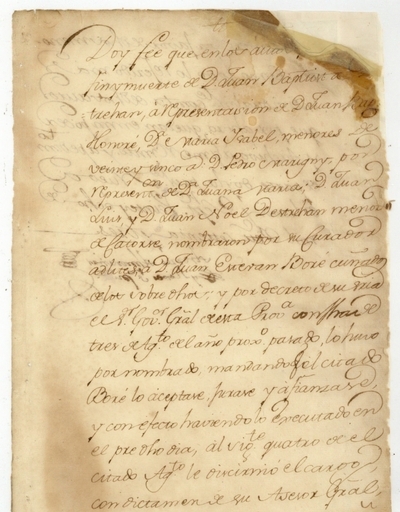 Doy feé que en los autos
fin y muerte de D.n Juan Baptista de
trehan, a representacion de D.n Juan Bap
Honoré, D.a Maria Isabel, menores de
veinte y cinco a.s D.n Pedro Marigny, por
represent.on de D.a Juana Maria; D.n Juan
Luis y D.n Juan Noel Destrehan menores
de catorse, nombraron por su Curador
adlitem à D.n Juan Estevan Boré cuñado
delos sobre dhos; y por decreto de su Sria
el S.or Gov.or Gral de esta Prov.a con fha de
tres de Ag.to de el año prox.o pasado, lo huvo
por nombrado, mandando q.e el citado
Boré lo aceptase, jurase y afianzase,
y con efecto haviendolo executado en
el predho dia, al sig.te quatro de el
citado Ag.to le discirnió el cargo
con dictamen de su Asesor Gral,